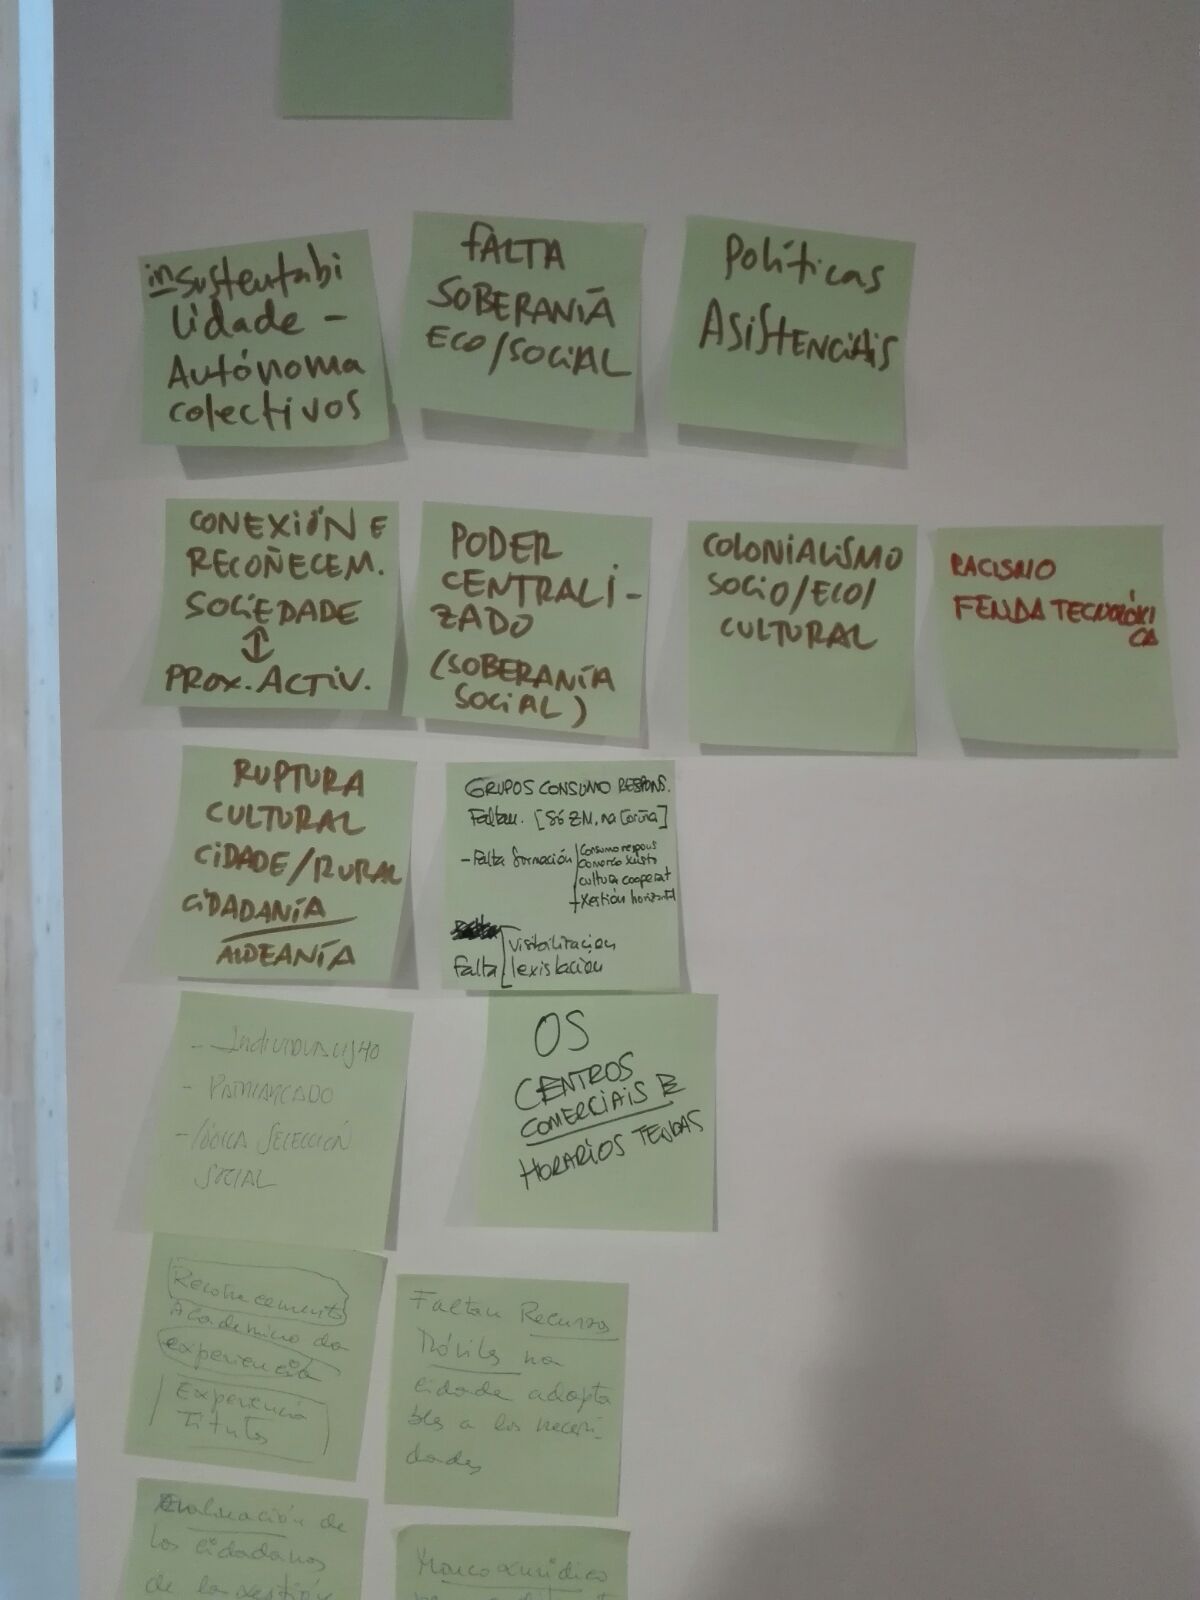 insustentabi
lidade -
Autónoma
colectivos
FALTA
SOBERANÍA
ECO/SOCIAL
Políticas
ASISTENCIAIS
CONEXIÓN E
RECOÑECEM.
SOCIEDADE
↕
PROX. ACTIV.
PODER
CENTRALI-
ZADO
(SOBERANÍA
SOCIAL)
COLONIALISMO
SOCIO/ECO/
CULTURAL
RACISMO
FENDA TECNOLÓXI
CA
RUPTURA
CULTURAL
CIDADE/RURAL
CIDADANÍA
ALDEANÍA
GRUPOS CONSUMO RESPONS.
Faltan. [Só ZM, na Coruña]
- Falta formación
Consumo respons
comercio xusto
cultura cooperat
+ xestión horizontal
Falta
visibilizacion
lexislación
- INDIVIDUALISMO
- PATRIARCADO
- LÓXICA SELECCIÓN
SOCIAL
OS
CENTROS
COMERCIAIS E
HORARIOS TENDAS
Recoñecemento
Académico da
experiencia
Experiencia
Títulos
Faltan Recursos
Móviles na
cidade adapta
bles a las necesi-
dades
Evaluación de
los cidadanos
de la xestión
Marco xurídico